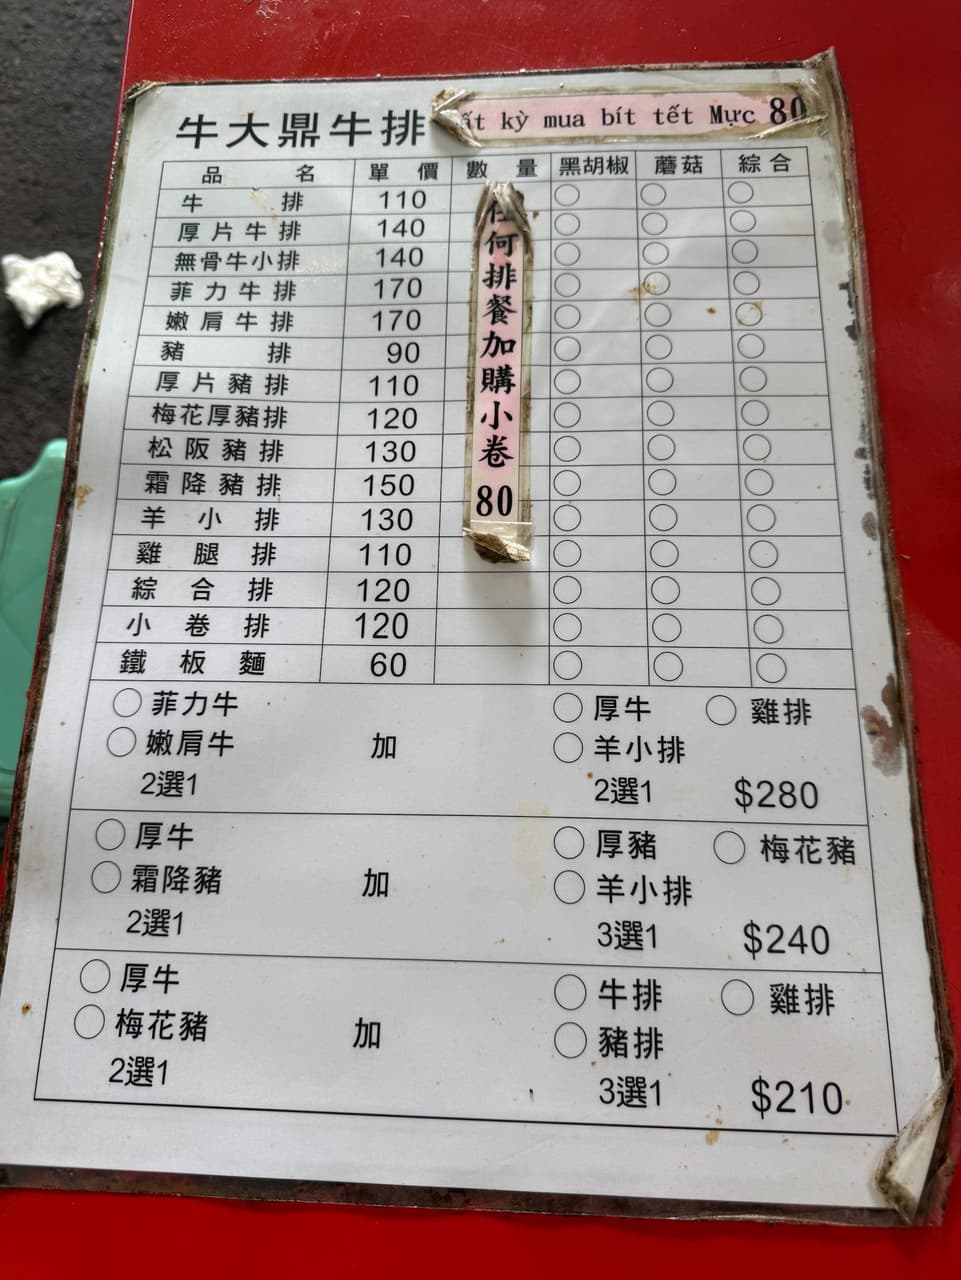 牛大鼎牛排
kỳ mua bít tết Mực 80
品名 單價 數量 黑胡椒 蘑菇 綜合
牛排 110
厚片牛排 140
無骨牛小排 140
菲力牛排 170
嫩肩牛排 170
豬排 90
厚片豬排 110
梅花厚豬排 120
松阪豬排 130
霜降豬排 150
羊小排 130
雞腿排 110
綜合排 120
小卷排 120
鐵板麵 60
任何排餐加購小卷 80
菲力牛 厚牛 雞排
嫩肩牛 加 羊小排
2選1 2選1 $280
厚牛 厚豬 梅花豬
霜降豬 加 羊小排
2選1 3選1 $240
厚牛 牛排 雞排
梅花豬 加 豬排
2選1 3選1 $210